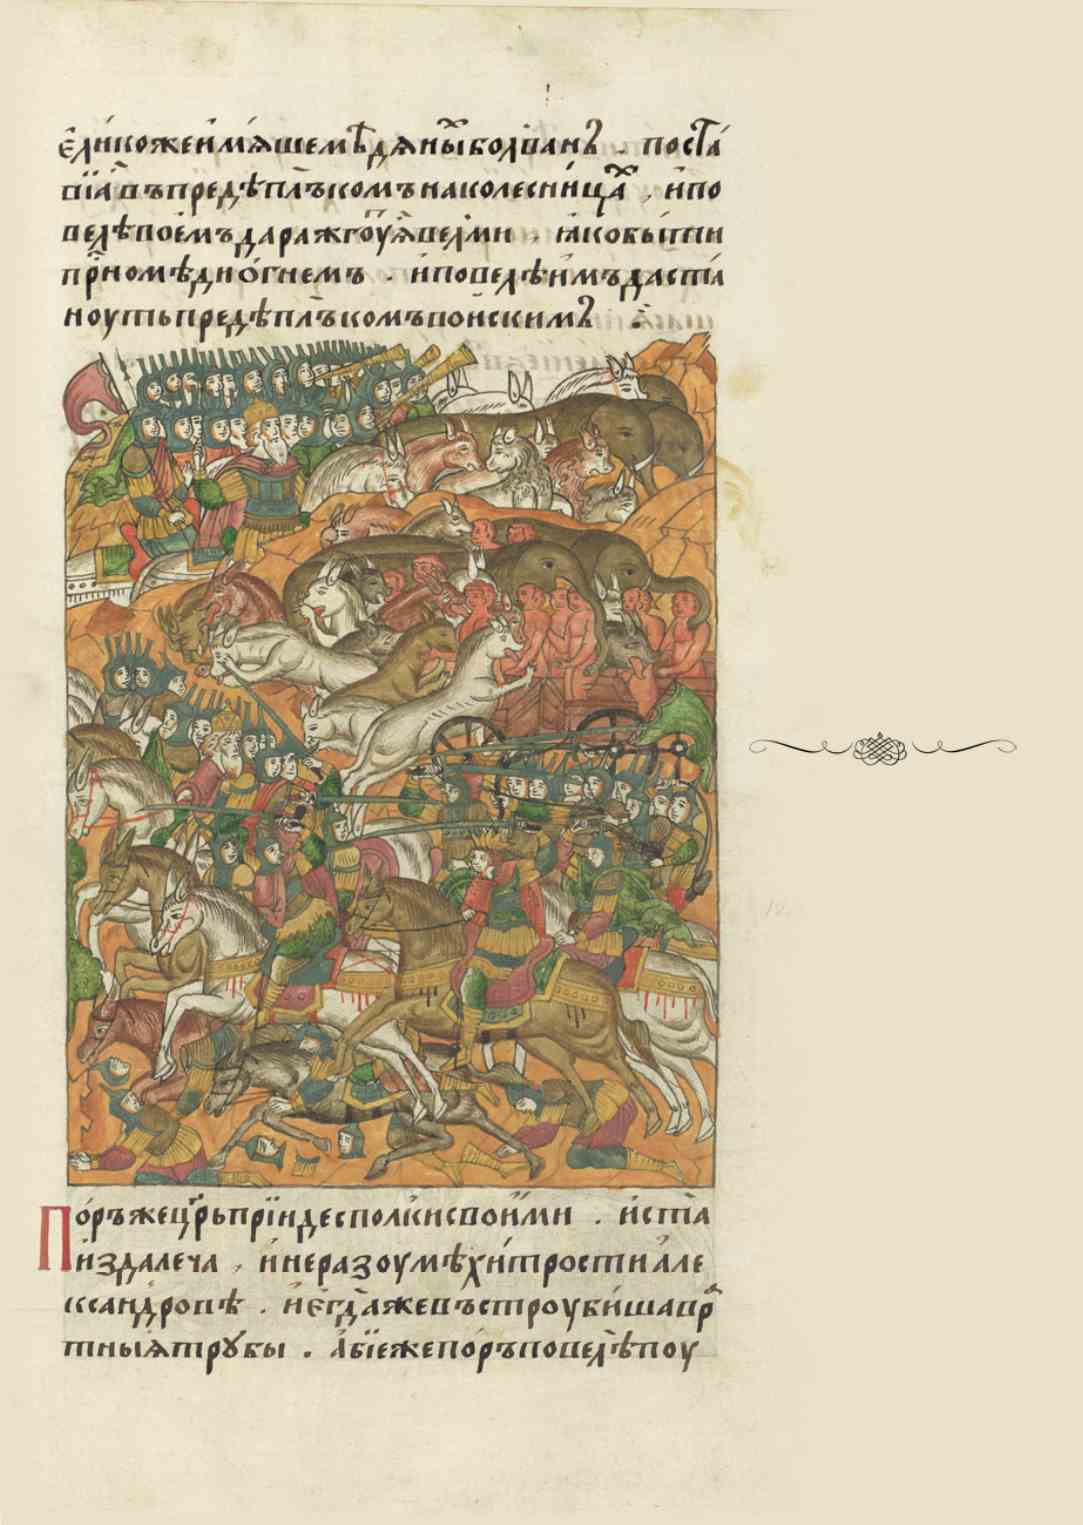 єли́кожеи́мѧ́шемѣ́дѧны́хболва́нъ . поста́
ви́ѧ̀въпредѣпл̾ъкомънаколесни́цах , и҆по
велѣвоє́мъдаражгоу́тѧ̀велми . ꙗ҆кобы́ти
при́номѣ́дио҆гнемъ . и҆повелѣи́мъдаста́
ноутьпредѣпл̾ъкомъво́инскимъ :
По́ръжецр҃ьпрїи́деспол̾кисвои́ми . и҆ста̀
и҆здале́ча , и҆неразоумѣ̀хи́тростиа҆ле
ѯа́ндровѣ . и҆є҆гда́жевъстроуби́шавр
тны́ѧтрꙋбы . а҆бїежепо́ръповелѣпоу